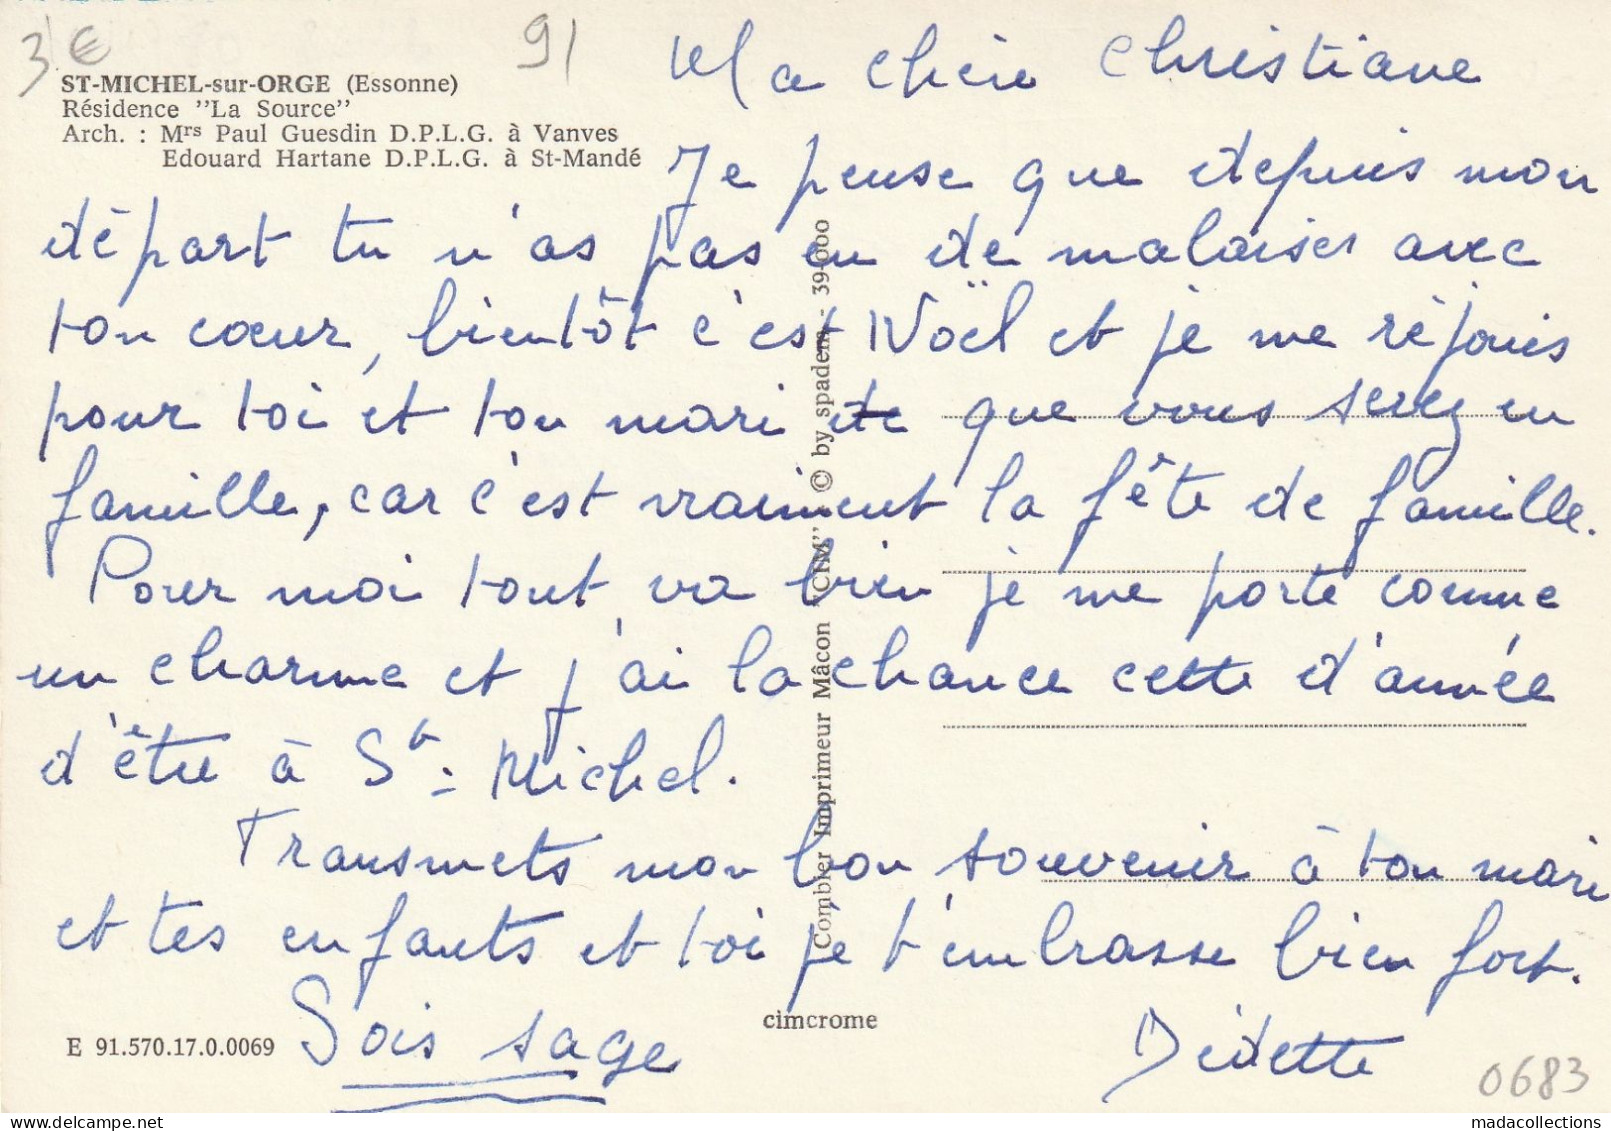 3 €
91
ST-MICHEL-sur-ORGE (Essonne)
Résidence "La Source"
Arch. : Mrs Paul Guesdin D.P.L.G. à Vanves
Edouard Hartane D.P.L.G. à St-Mandé
Ma chère Christiane
Je pense que depuis mon
départ tu n'as pas eu de malaises avec
ton cœur, bientôt c'est Noël et je me réjouis
pour toi et ton mari de que vous serez en
famille, car c'est vraiment la fête de famille.
Pour moi tout va bien je me porte comme
un charme et j'ai la chance cette d'année
d'être à St-Michel.
Transmets mon bon souvenir à ton mari
et tes enfants et toi je t'embrasse bien fort.
Sois sage
Dédette
Combier Imprimeur Mâcon "CIM" © by spadem - 39-000
cimcrome
E 91.570.17.0.0069
0683
madacollections